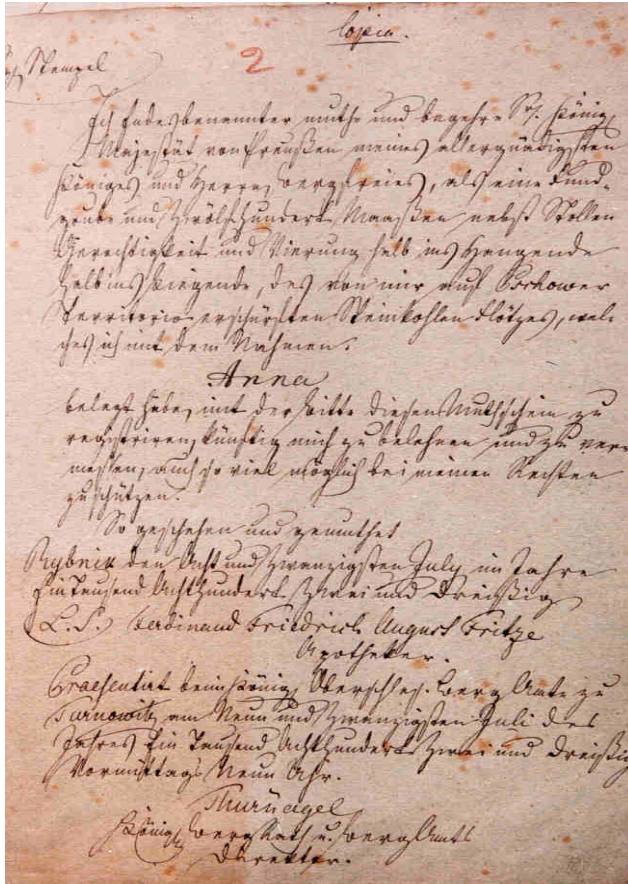 Copia.
Stempel
2
Ich Endesbenannter muthe und begehre Sr. Königl.
Majestät von Preußen meines allergnädigsten
Königes und Herrn, Bergfreies, als eine Fund-
grube und Zwölfhundert Maaßen nebst Stollen
Gerechtigkeit und Vierung halb ins Hangende
halb ins Liegende, des von mir auf Pschower
Territorio erschürften Steinkohlen Flötzes, wel-
ches ich mit dem Nahmen:
Anna
belegt habe, mit der Bitte diesen Muthschein zu
registriren, künftig mich zu belehnen und zu ver-
messen, auch so viel möglich bei meinen Rechten
zu schützen.
So geschehen und gemuthet
Rybnik den Acht und Zwanzigsten July im Jahre
Ein Tausend Achthundert Zwei und Dreißig
(L.S.) Ferdinand Friedrich August Fritze
Apotheker.
Praesentirt beim Königl. Oberschles. Berg Amte zu
Tarnowitz am Neun und Zwanzigsten Juli des
Jahres Ein Tausend Achthundert Zwei und Dreißig
Vormittags Neun Uhr.
Thürnagel
Königl. Berg Rath u. Berg Amts
Direktor.